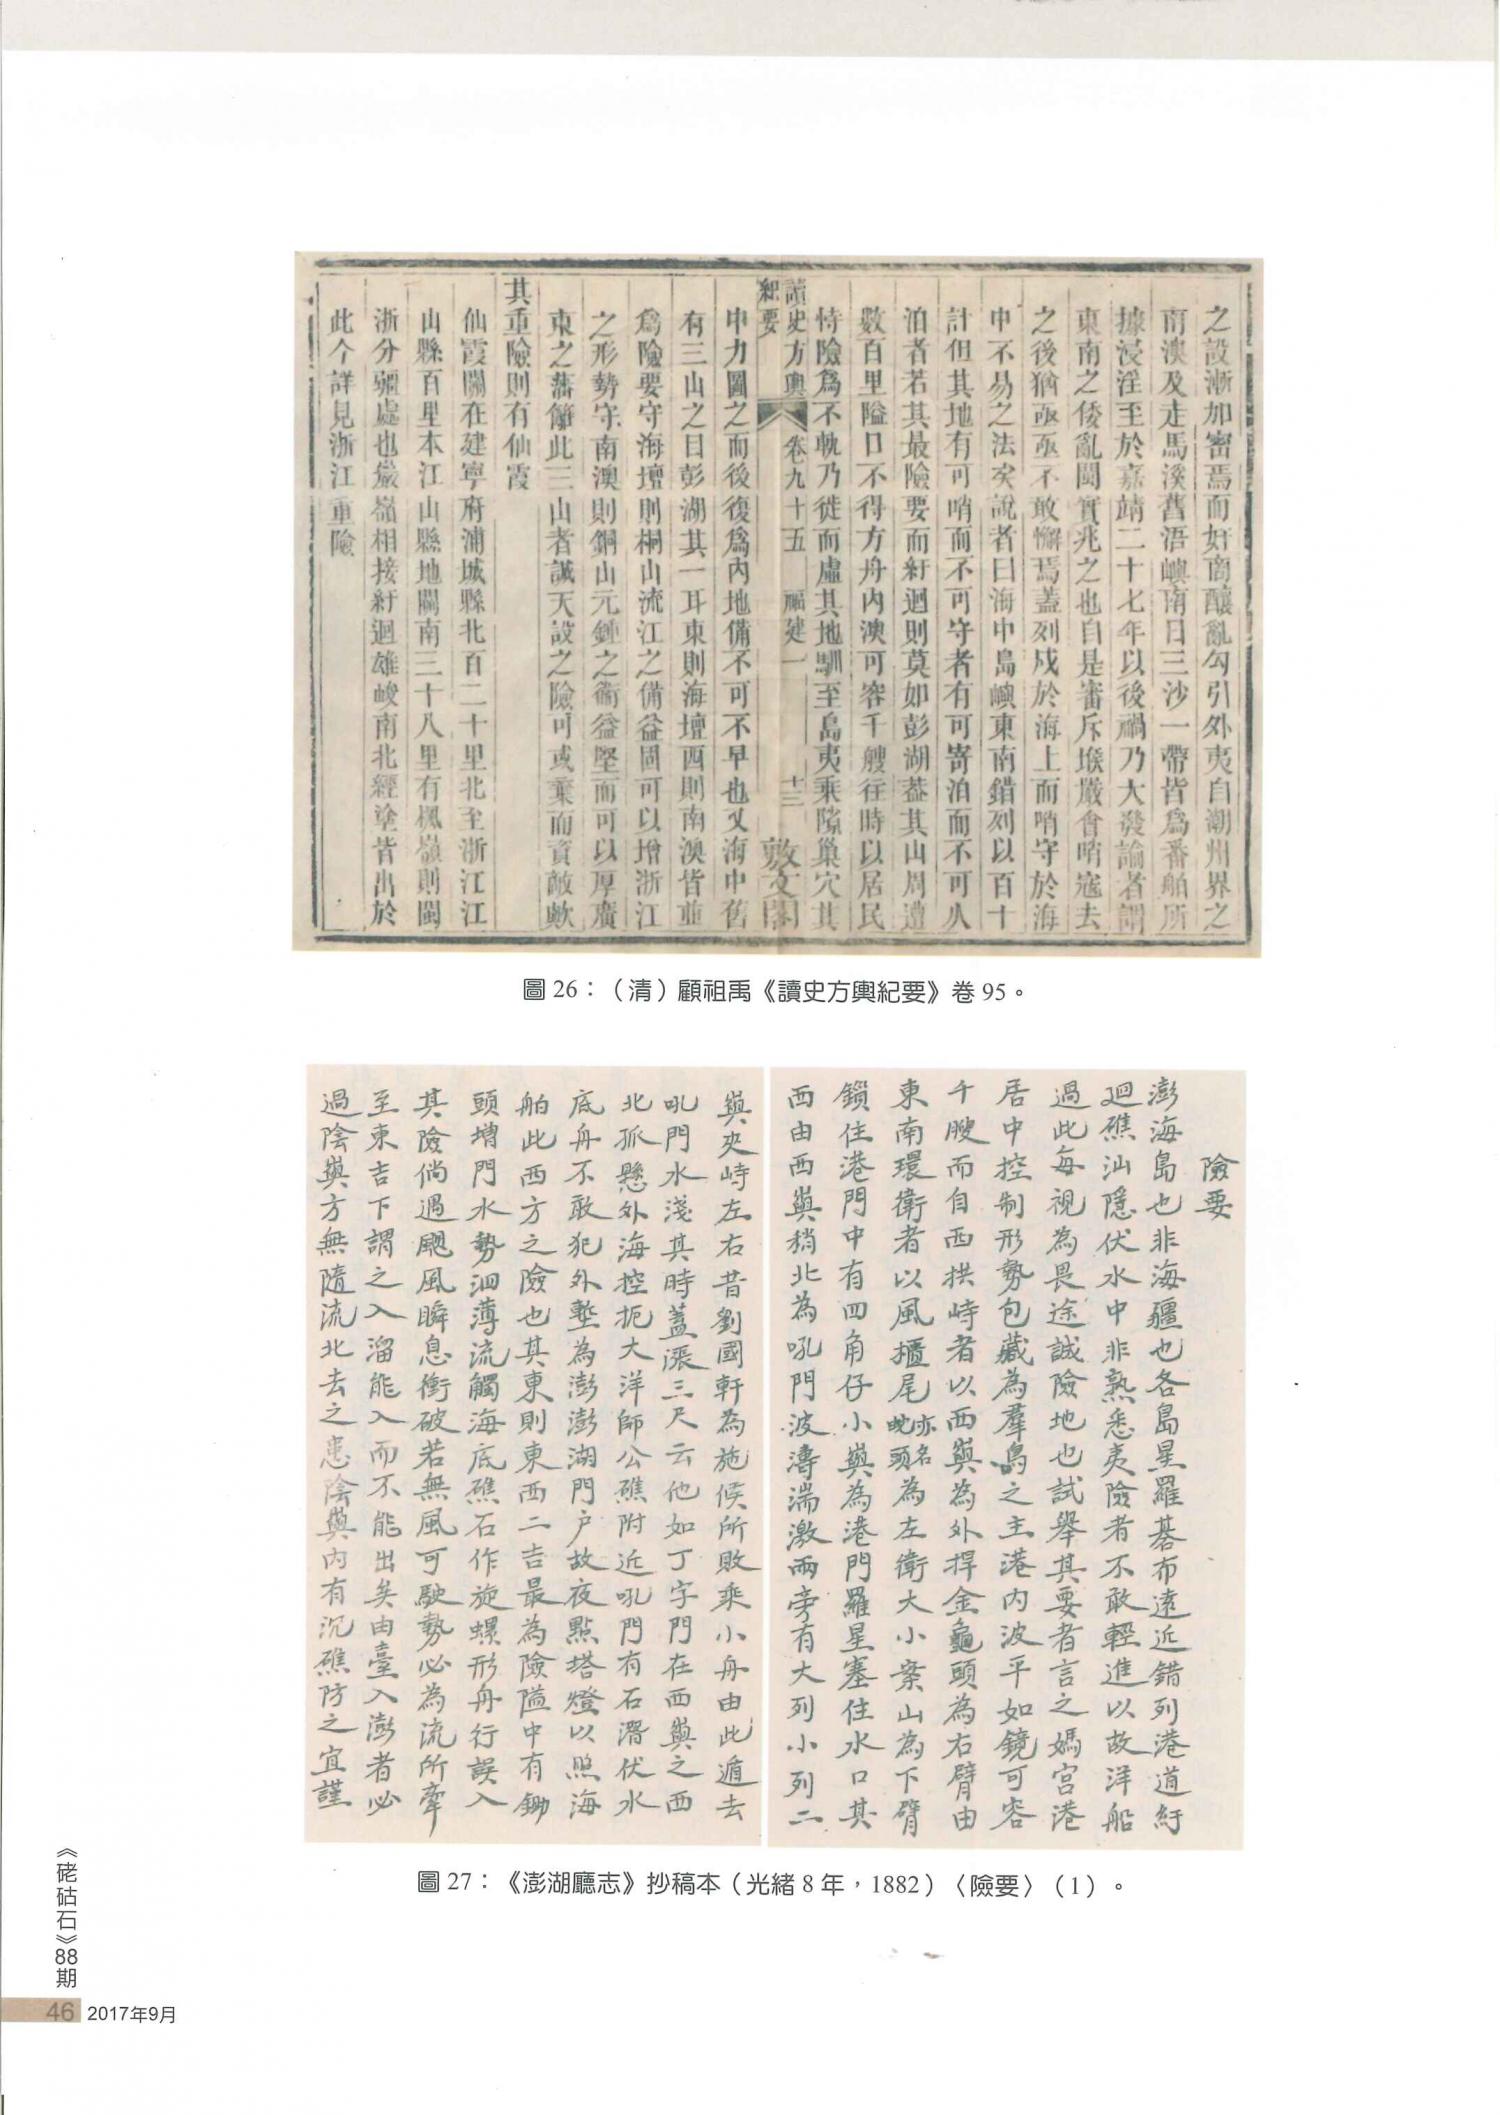 之設漸加密焉而奸商釀亂勾引外夷自潮州界之
南澳及走馬溪舊浯嶼南日三沙一帶皆爲番舶所
據浸淫至於嘉靖二十七年以後禍乃大發論者謂
東南之倭亂閩實兆之也自是審斥堠嚴會哨寇去
之後猶亟亟不敢懈焉蓋列戍於海上而哨守於海
中不易之法矣說者曰海中島嶼東南錯列以百十
計但其地有可哨而不可守者有可寄泊而不可久
泊者若其最險要而紆迴則莫如彭湖蓋其山周遭
數百里隘口不得方舟內澳可容千艘往時以居民
恃險爲不軌乃徙而虛其地馴至島夷乘隙巢穴其
讀史方輿紀要 卷九十五 福建一 十三 敷文閣
中力圖之而後復爲內地備不可不早也又海中舊
有三山之目彭湖其一耳東則海壇西則南澳皆並
爲險要守海壇則桐山流江之備益固可以增浙江
之形勢守南澳則銅山元鍾之衞益堅而可以厚廣
東之藩籬此三山者誠天設之險可或棄而資敵歟
其重險則有仙霞
仙霞關在建寧府浦城縣北百二十里北至浙江江
山縣百里本江山縣地關南三十八里有楓嶺則閩
浙分疆處也嚴嶺相接紆迴雄峻南北經塗皆出於
此今詳見浙江重險
圖 26：（清）顧祖禹《讀史方輿紀要》卷 95。
險要
澎海島也非海疆也各島星羅碁布遠近錯列港道紆
迴礁汕隱伏水中非熟悉夷險者不敢輕進以故洋船
過此每視為畏途誠險地也試舉其要者言之媽宮港
居中控制形勢包藏為羣島之主港內波平如鏡可容
千艘而自西拱峙者以西嶼為外捍金龜頭為右臂由
東南環衛者以風櫃尾亦名虵頭為左衛大小案山為下臂
鎖住港門中有四角仔小嶼為港門羅星塞住水口其
西由西嶼稍北為吼門波濤湍激兩旁有大列小列二
嶼夾峙左右昔劉國軒為施侯所敗乘小舟由此遁去
吼門水淺其時蓋漲三尺云他如丁字門在西嶼之西
北孤懸外海控扼大洋師公礁附近吼門有石潛伏水
底舟不敢犯外塹為澎澎湖門户故夜點塔燈以照海
舶此西方之險也其東則東西二吉最為險隘中有鋤
頭增門水勢洄薄流觸海底礁石作旋螺形舟行誤入
其險倘遇颶風瞬息衝破若無風可駛勢必為流所牽
至東吉下謂之入溜能入而不能出矣由臺入澎者必
過陰嶼方無隨流北去之患陰嶼內有沉礁防之宜謹
圖 27：《澎湖廳志》抄稿本（光緒 8 年，1882）〈險要〉（1）。
《硓𥑮石》88期
46 2017年9月